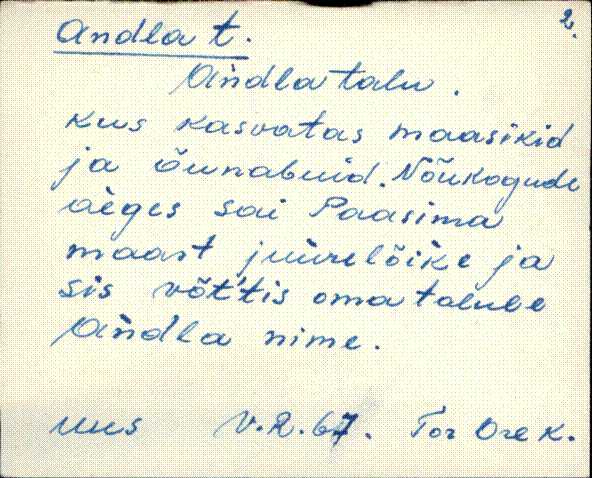 2.
Andla t.
Añdla talu.
kus kasvatas maasikid
ja õunabuid. Nõukogude
aéges sai Paasima
maast juurelõike ja
sis võt't'is oma talule
Añdla nime.
uus V.R. 67. Tor Orek.